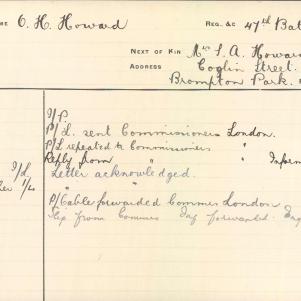 ME O. H. Howard REG. &c 47th Bat
NEXT OF KIN Mrs S. A. Howard
ADDRESS Coglin Street.
Brompton Park.
I/P.
P/L. sent Commissioners London.
P/L repeated to Commissioners
Reply from " " Inform
I/L Letter acknowledged.
"
P/Cable forwarded Commrs London
Slip from Commrs forwarded